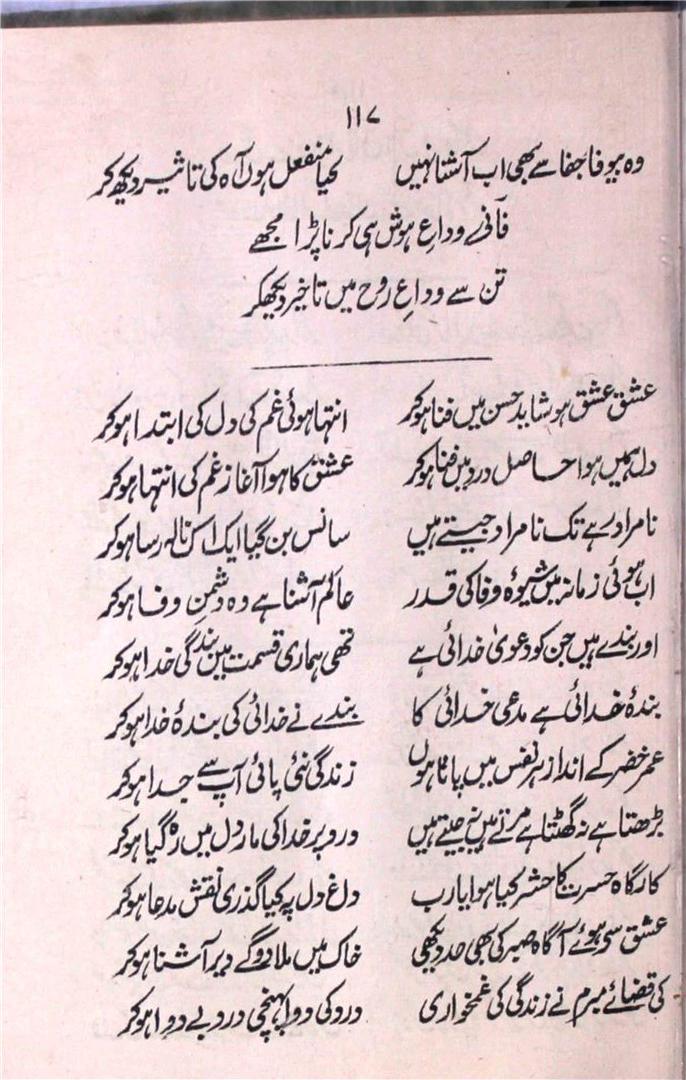 ۱۱۷
وہ بیوفا جفا سے بھی اب آشنا نہیں کیا منفعل ہوں آہ کی تاثیر دیکھ کر
فانؔی وداعِ ہوش ہی کرنا پڑا مجھے
تن سے وداعِ روح میں تاخیر دیکھکر
عشق عشق ہو شاید حسن میں فنا ہوکر انتہا ہوئی غم کی دل کی ابتدا ہوکر
دل ہمیں ہوا حاصل درد میں فنا ہوکر عشق کا ہوا آغاز غم کی انتہا ہوکر
نامراد رہے تک نامراد جیتے ہیں سانس بن گیا ایک اک نالہ رسا ہوکر
اب ہوئی زمانہ میں شیوۂ وفا کی قدر عالم آشنا ہے وہ دشمنِ وفا ہوکر
اور بندے ہیں جن کو دعویٰ خدائی ہے تھی ہماری قسمت میں بندگی خدا ہوکر
بندۂ خدائی ہے مدعی خدائی کا بندے نے خدائی کی بندۂ خدا ہوکر
عمر خضر کے انداز ہر نفس میں پاتا ہوں زندگی نئی پائی آپ سے جدا ہوکر
بڑھتا ہے نہ گھٹتا ہے مرتے ہیں نہ جیتے ہیں درد پر خدا کی مار دل میں رہ گیا ہوکر
کارگاہ حسرت کا حشر کیا ہوا یارب داغ دل پہ کیا گذری نقش مدعا ہوکر
عشق سے ہوئے آگاہ صبر کی بھی حد دیکھی خاک میں ملا دو گے دیر آشنا ہوکر
کی قضائے مبرم نے زندگی کی غمخواری درد کی دوا پہنچی درد بے دوا ہوکر